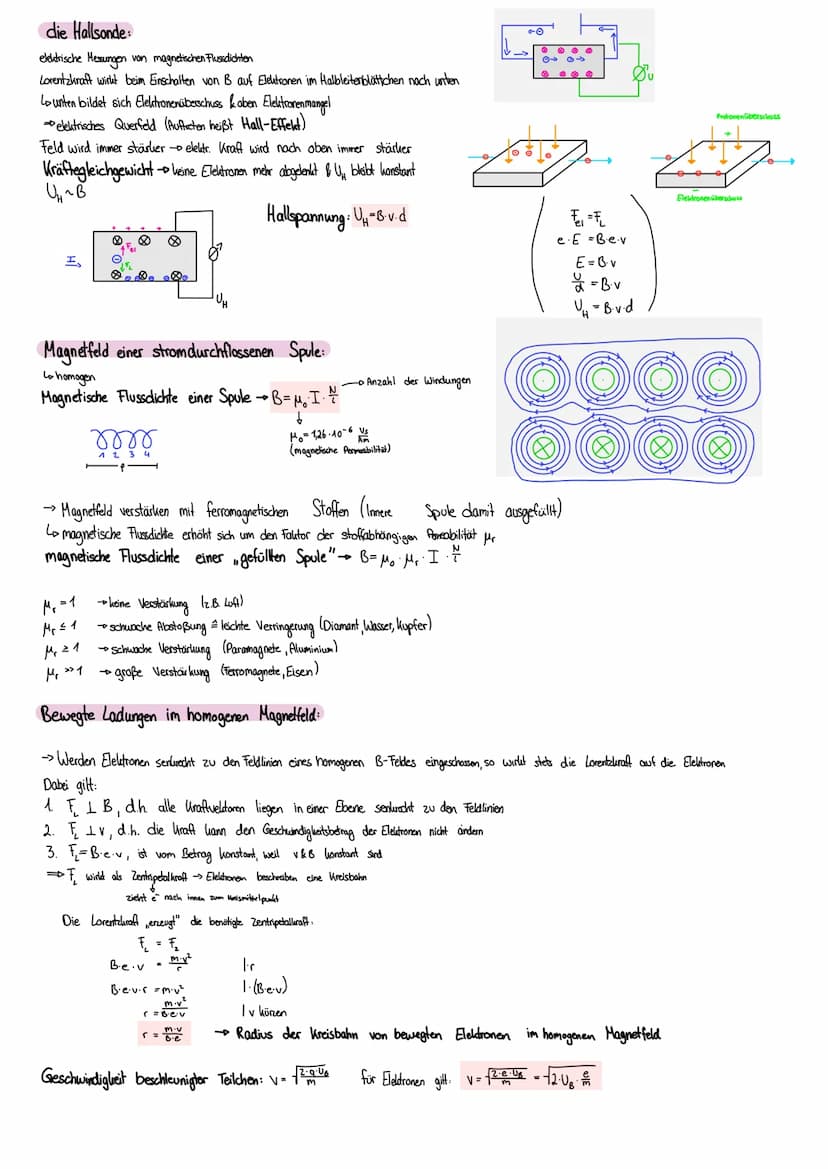 die Hallsonde:
elektrische Messungen von magnetischen Flussdichten
Lorentzkraft wirkt beim Einschalten von B auf Elektronen im Halbleiterblättchen nach unten
↳ unten bildet sich Elektronenüberschuss & oben Elektronenmangel
→ elektrisches Querfeld (Auftreten heißt Hall-Effekt)
Feld wird immer stärker → elektr. Kraft wird nach oben immer stärker
Kräftegleichgewicht → keine Elektronen mehr abgelenkt & U_H bleibt konstant
U_H ~ B
U
Protonenüberschuss
Elektronenüberschuss
Hallspannung: U_H = B·v·d
I
F_el
F_L
U_H
F_el = F_L
e·E = B·e·v
E = B·v
U/d = B·v
U_H = B·v·d
Magnetfeld einer stromdurchflossenen Spule:
↳ homogen
Magnetische Flussdichte einer Spule → B = μ₀·I·N/l
→ Anzahl der Windungen
μ₀ = 1,26·10⁻⁶ Vs/Am
(magnetische Permeabilität)
1 2 3 4
l
→ Magnetfeld verstärken mit ferromagnetischen Stoffen (Innere Spule damit ausgefüllt)
↳ magnetische Flussdichte erhöht sich um den Faktor der stoffabhängigen Permeabilität μᵣ
magnetische Flussdichte einer „gefüllten Spule" → B = μ₀·μᵣ·I·N/l
μᵣ = 1 → keine Verstärkung (z.B. Luft)
μᵣ ≤ 1 → schwache Abstoßung ≙ leichte Verringerung (Diamant, Wasser, Kupfer)
μᵣ ≥ 1 → schwache Verstärkung (Paramagnete, Aluminium)
μᵣ >> 1 → große Verstärkung (Ferromagnete, Eisen)
Bewegte Ladungen im homogenen Magnetfeld:
→ Werden Elektronen senkrecht zu den Feldlinien eines homogenen B-Feldes eingeschossen, so wirkt stets die Lorentzkraft auf die Elektronen
Dabei gilt:
1. F_L ⊥ B, d.h. alle Kraftvektoren liegen in einer Ebene senkrecht zu den Feldlinien
2. F_L ⊥ v, d.h. die Kraft kann den Geschwindigkeitsbetrag der Elektronen nicht ändern
3. F_L = B·e·v, ist vom Betrag konstant, weil v & B konstant sind
⇒ F_L wirkt als Zentripetalkraft → Elektronen beschreiben eine Kreisbahn
zieht e⁻ nach innen zum Kreismittelpunkt
Die Lorentzkraft „erzeugt" die benötigte Zentripetalkraft:
F_L = F_Z
B·e·v = m·v²/r |·r
B·e·v·r = m·v² |:(B·e·v)
r = m·v²/B·e·v | v kürzen
r = m·v/B·e → Radius der Kreisbahn von bewegten Elektronen im homogenen Magnetfeld
Geschwindigkeit beschleunigter Teilchen: v = √(2·q·U_B/m) für Elektronen gilt: v = √(2·e·U_B/m) = √(2·U_B·e/m)